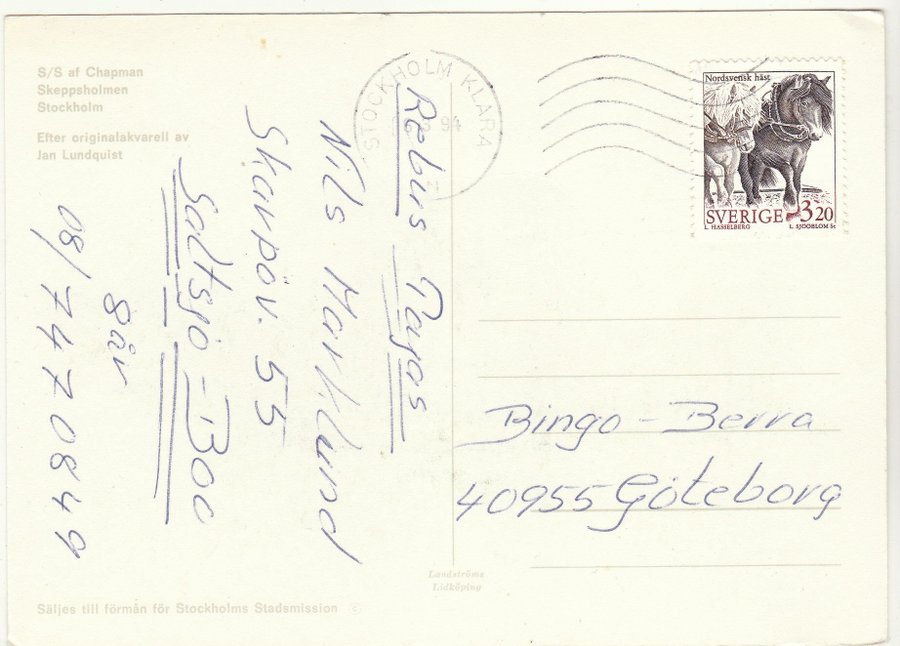 S/S af Chapman
Skeppsholmen
Stockholm
Efter originalakvarell av
Jan Lundquist
STOCKHOLM KLARA
94
Nordsvensk häst
SVERIGE 3,20
L. HASSELBERG L. SJÖÖBLOM SC
Rebus Tajos
Nils Marklund
Skarpöv. 55
Saltsjö-Boo
8 år
08/7470849
Bingo-Berra
40955 Göteborg
Landströms
Lidköping
Säljes till förmån för Stockholms Stadsmission ©